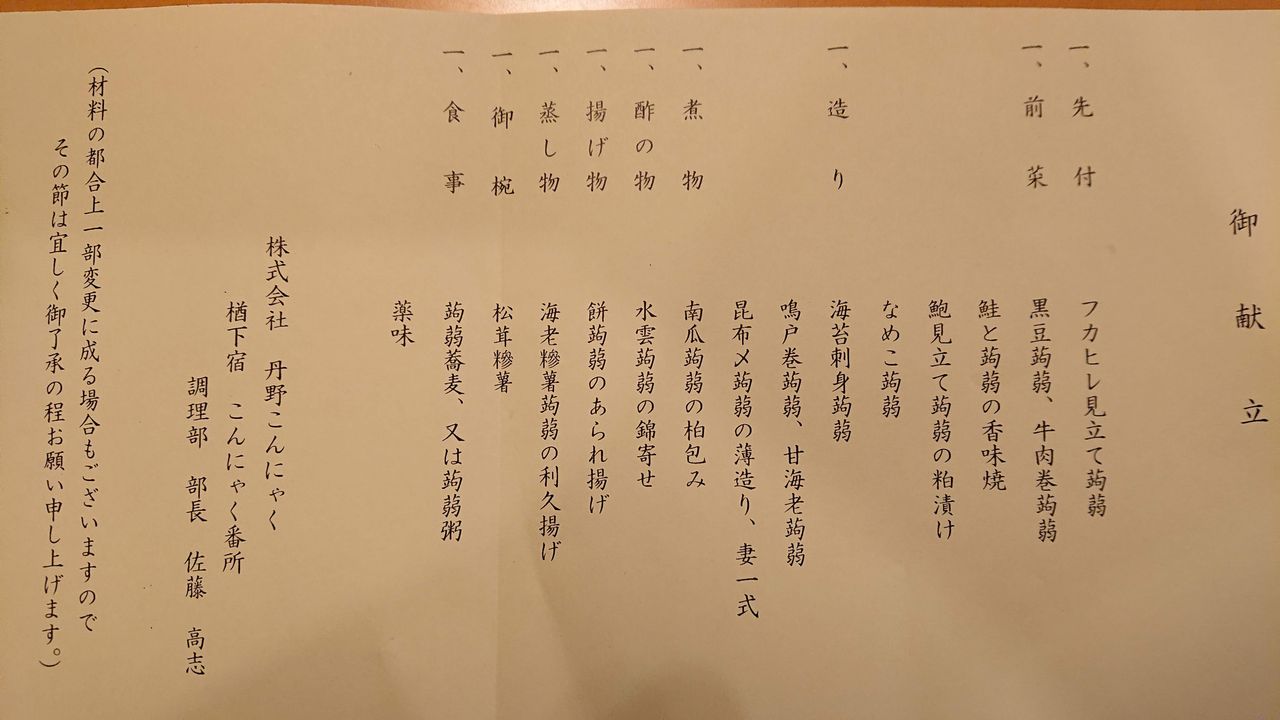 御献立
一、先付　フカヒレ見立て蒟蒻
一、前菜　黒豆蒟蒻、牛肉巻蒟蒻
鮭と蒟蒻の香味焼
鮑見立て蒟蒻の粕漬け
なめこ蒟蒻
一、造り　海苔刺身蒟蒻
鳴戸巻蒟蒻、甘海老蒟蒻
昆布〆蒟蒻の薄造り、妻一式
一、煮物　南瓜蒟蒻の柏包み
一、酢の物　水雲蒟蒻の錦寄せ
一、揚げ物　餅蒟蒻のあられ揚げ
一、蒸し物　海老糝薯蒟蒻の利久揚げ
一、御椀　松茸糝薯
一、食事　蒟蒻蕎麦、又は蒟蒻粥
薬味
株式会社　丹野こんにゃく
楢下宿　こんにゃく番所
調理部　部長　佐藤　高志
（材料の都合上一部変更に成る場合もございますので
その節は宜しく御了承の程お願い申し上げます。）